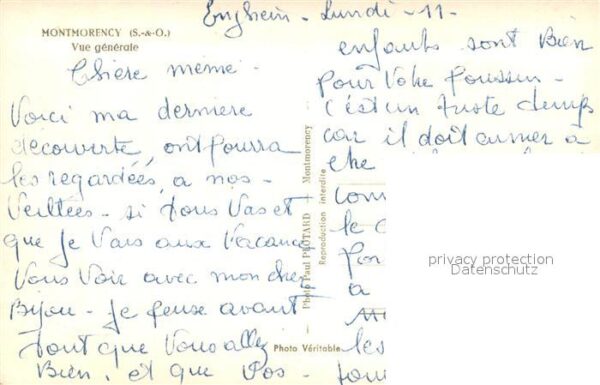 Enghein - Lundi - 11 -
MONTMORENCY (S.-&-O.)
Vue générale
Chère mémé -
Voici ma dernière
découverte, ont pourra
les regardées, a nos -
Veillées - si tous Vas et
que je Vais aux Vacances
Vous Voir avec mon cher
Bijou - je pense avant
tout que Vous allez
Bien, et que Vos -
enfants sont Bien
pour Votre poussin -
c'est un juste temps
car il doit aimer a
etre
le
a
les
Photo Paul PROTARD Montmorency
Reproduction interdite
Photo Véritable
privacy protection
Datenschutz